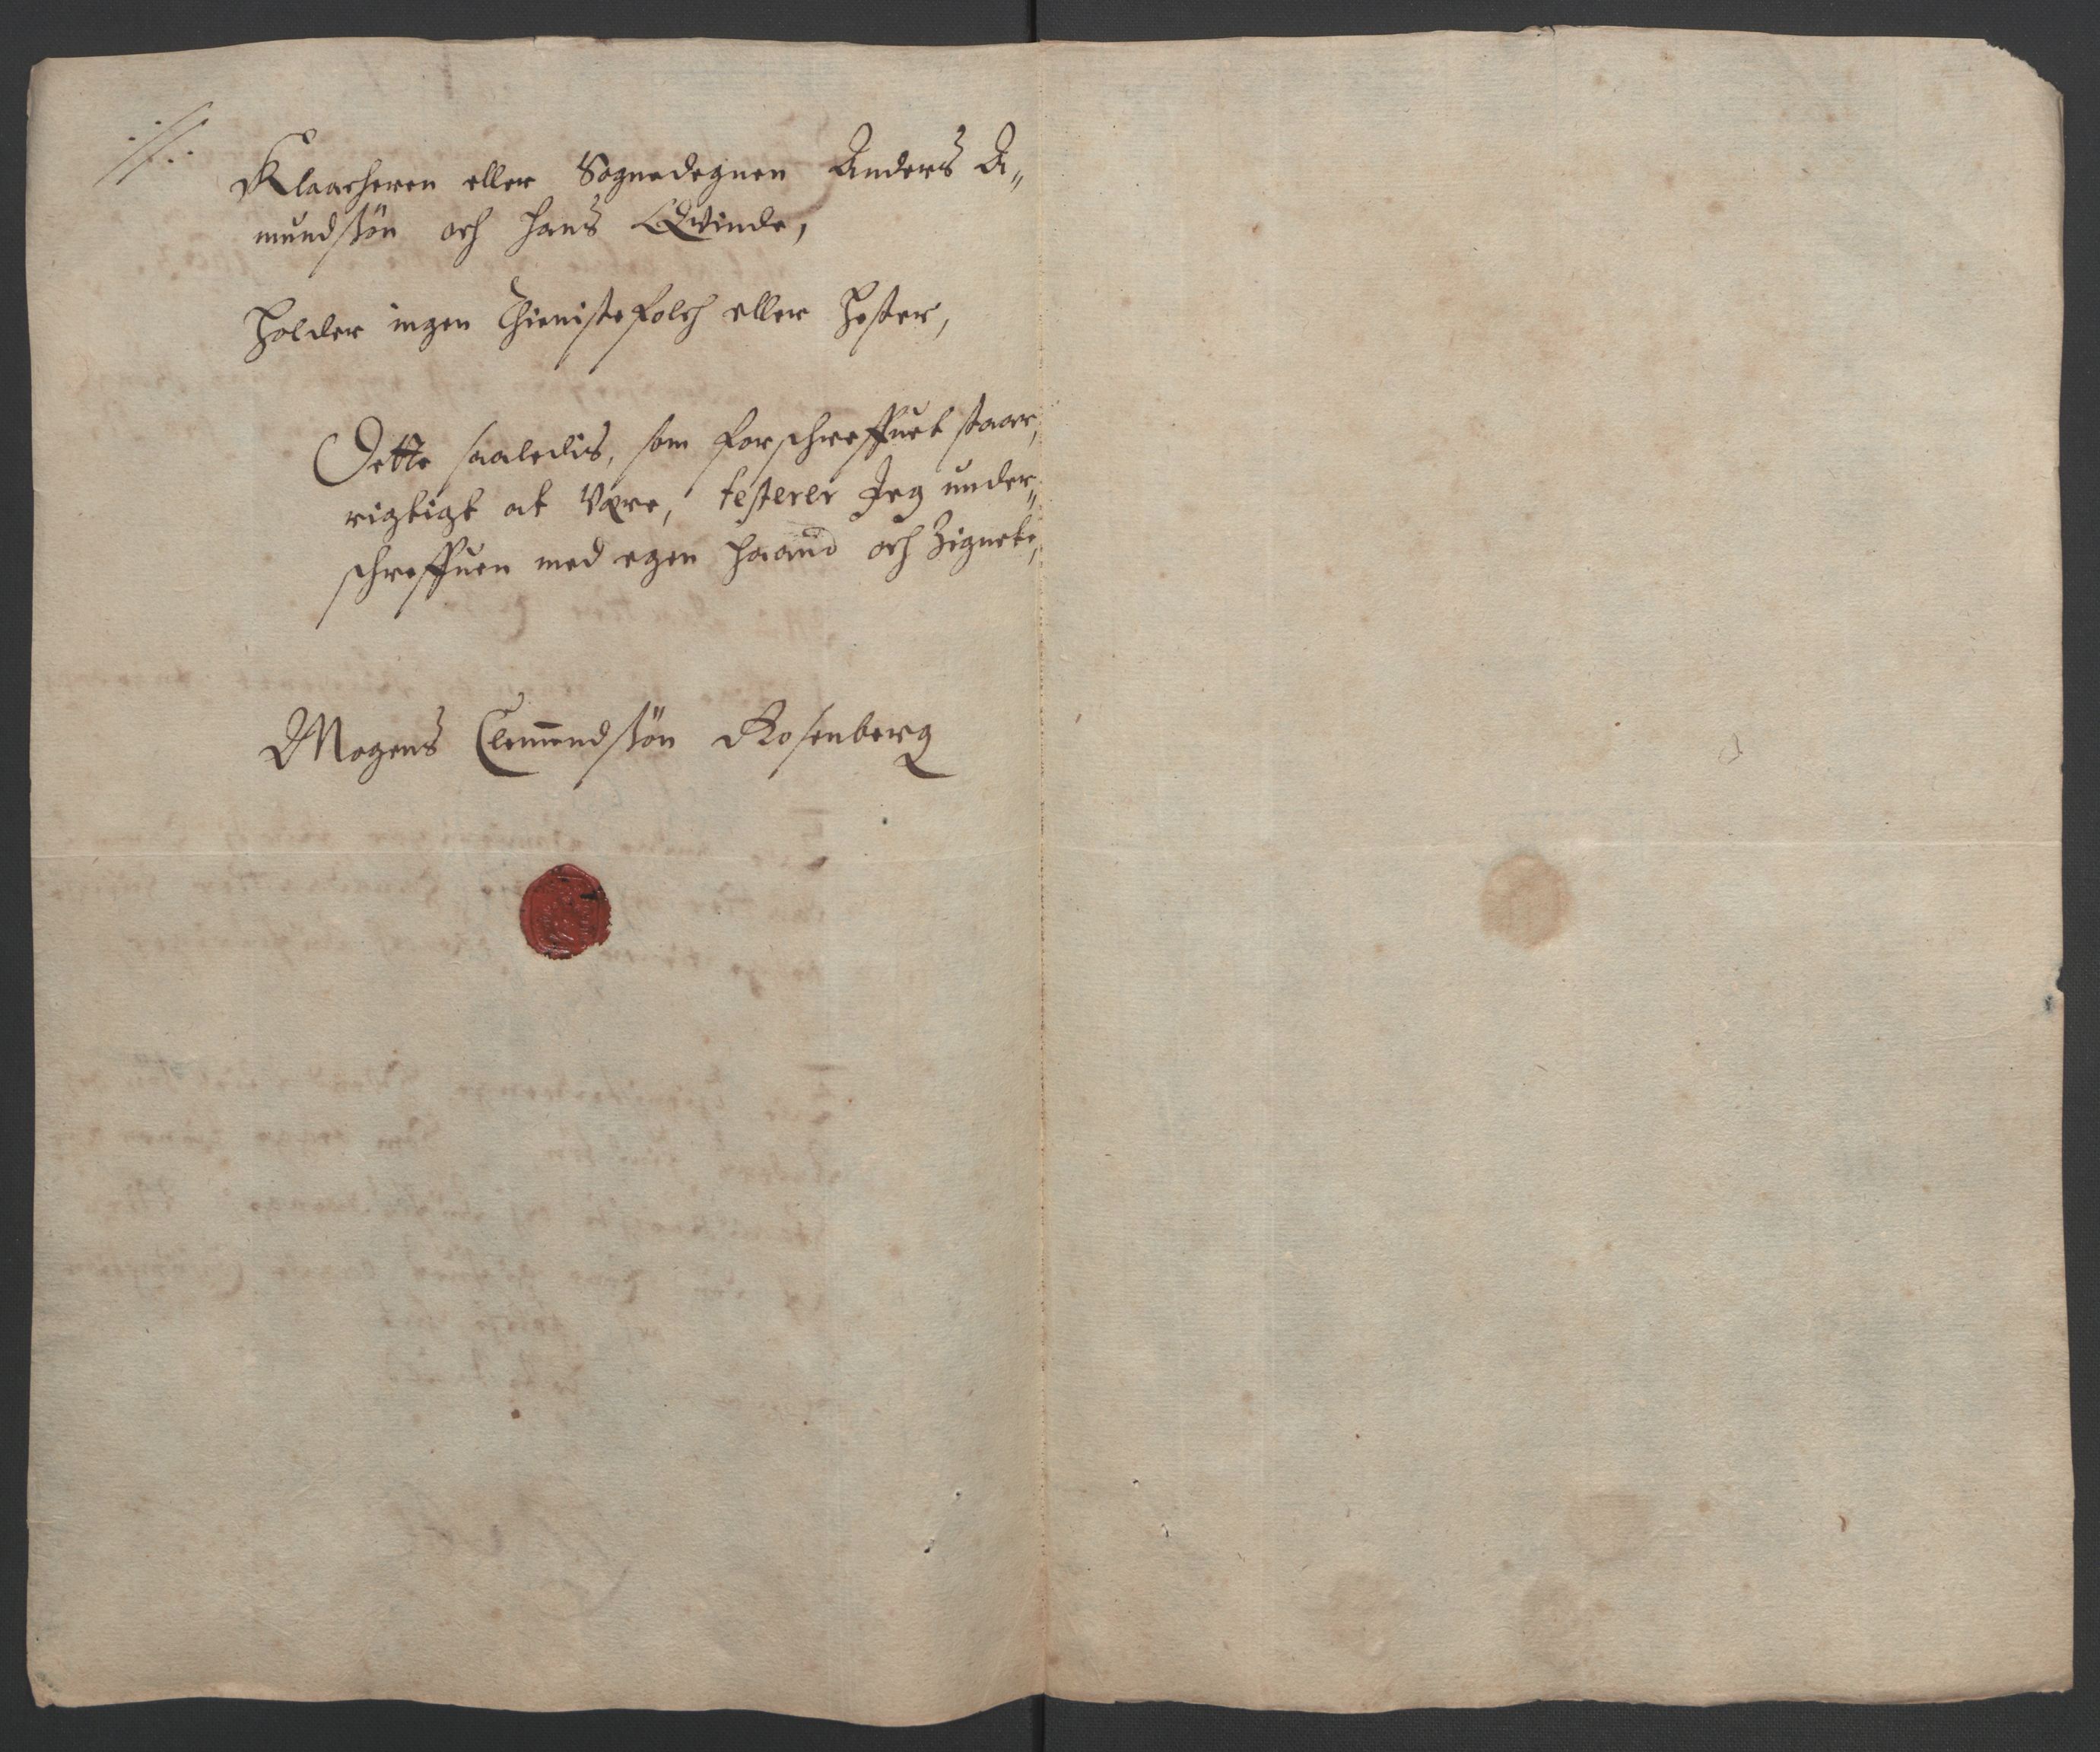 Klaacheren eller Sognedegnen Anders A„
mundssön och hans Qvinde,
holder ingen Thienistefolch eller Hester,
Dette saaledis, som forschreffuet staar,
rigtigt at være, testerer Jeg under„
schreffuen med egen Haand och Zignete,
Mogens Clemendssön Rosenberg